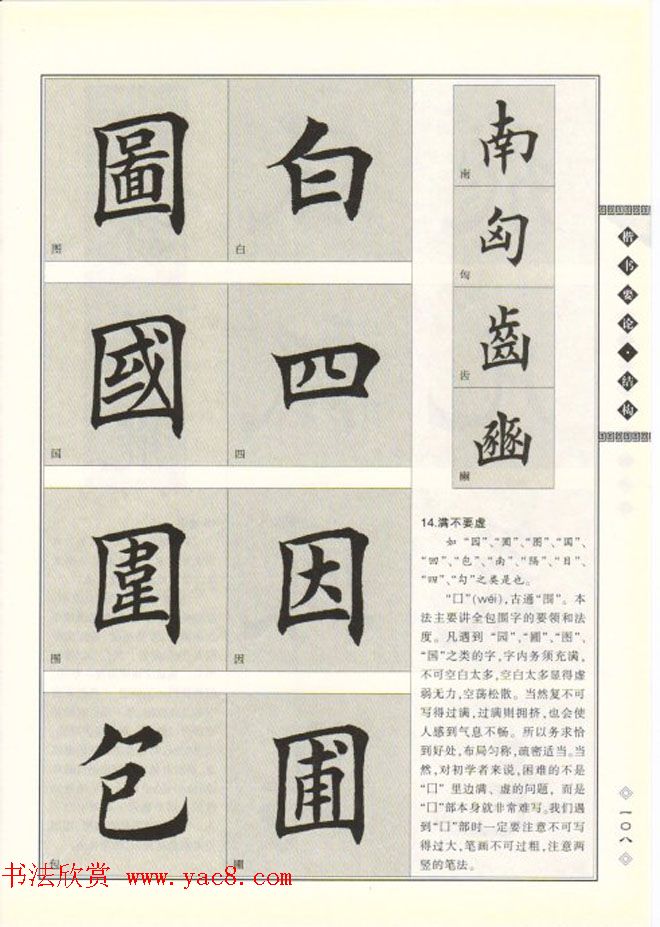 圖
图
白
白
國
国
四
四
圍
围
因
因
包
包
圃
圃
南
南
匈
匈
齒
齿
豳
豳
楷书要论·结构
14.满不要虚
如“园”、“圃”、“图”、“国”、
“回”、“包”、“南”、“隔”、“目”、
“四”、“勾”之类是也。
“囗”(wéi),古通“围”。本
法主要讲全包围字的要领和法
度。凡遇到“园”、“圃”、“图”、
“国”之类的字,字内务须充满,
不可空白太多,空白太多显得虚
弱无力,空荡松散。当然复不可
写得过满,过满则拥挤,也会使
人感到气息不畅。所以务求恰
到好处,布局匀称,疏密适当。当
然,对初学者来说,困难的不是
“囗”里边满、虚的问题,而是
“囗”部本身就非常难写。我们遇
到“囗”部时一定要注意不可写
得过大,笔画不可过粗,注意两
竖的笔法。
一〇八
书法欣赏 www.yac8.com